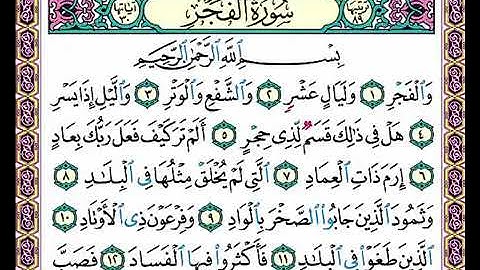 سُورَةُ الْفَجْرِ
بِسْمِ اللَّهِ الرَّحْمَٰنِ الرَّحِيمِ
وَالْفَجْرِ ١ وَلَيَالٍ عَشْرٍ ٢ وَالشَّفْعِ وَالْوَتْرِ ٣ وَاللَّيْلِ إِذَا يَسْرِ
٤ هَلْ فِي ذَٰلِكَ قَسَمٌ لِّذِي حِجْرٍ ٥ أَلَمْ تَرَ كَيْفَ فَعَلَ رَبُّكَ بِعَادٍ
٦ إِرَمَ ذَاتِ الْعِمَادِ ٧ الَّتِي لَمْ يُخْلَقْ مِثْلُهَا فِي الْبِلَادِ ٨
وَثَمُودَ الَّذِينَ جَابُوا الصَّخْرَ بِالْوَادِ ٩ وَفِرْعَوْنَ ذِي الْأَوْتَادِ ١٠
الَّذِينَ طَغَوْا فِي الْبِلَادِ ١١ فَأَكْثَرُوا فِيهَا الْفَسَادَ ١٢ فَصَبَّ